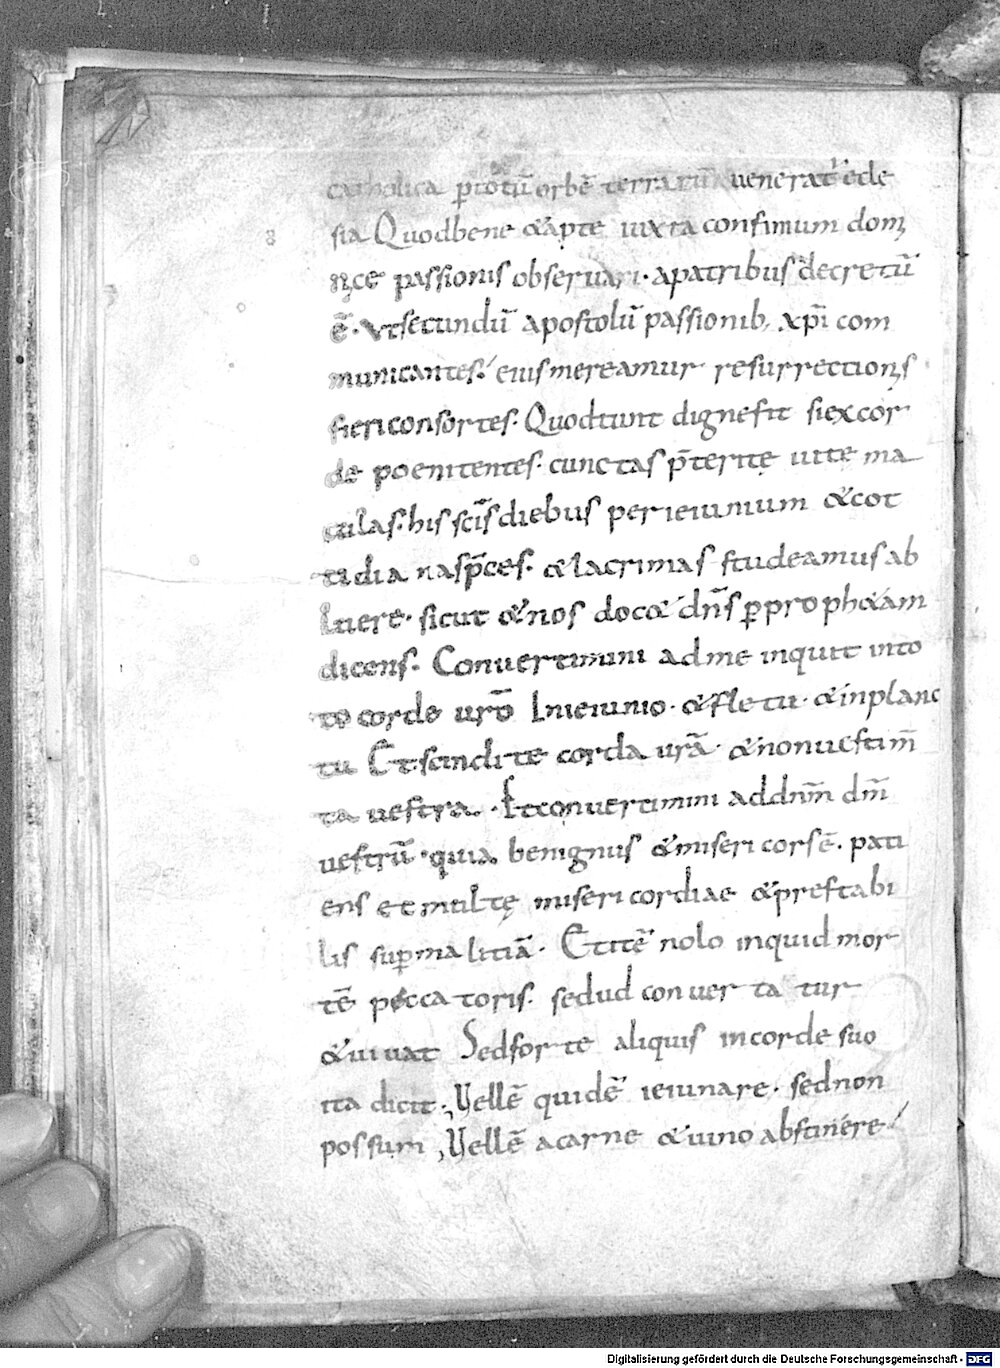 catholica ꝑ totū orbē terrarū venerat᷑ ecle
sia Quod bene & apte iuxta confinium domi
nice passionis observari· a patribus decretū
ē· ut secundū apostolū passionib; xp̄i com
municantes· eius mereamur resurrectionis
fieri consortes· Quod tunc digne fit si ex cor
de poenitentes· cunctas p̄terite vite ma
culas· his sc̄is diebus per ieiunium & cot
tidianas p̄ces· & lacrimas studeamus ab
luere· sicut & nos doc& dn̄s ꝑ proph&am
dicens· Convertimini ad me inquit in to
to corde vr̄o In ieiunio· & fletu· & in planc
tu Et scindite corda vr̄a· & non vestim̄
ta vestra· Et convertimini ad dn̄m dm̄
vestrū· quia benignus & misericors ē· pati
ens et multę misericordiae & prestabi
lis suꝑ malitiā· Et itē nolo inquid mor
tē peccatoris· sed ud convertatur
& vivat Sed forte aliquis in corde suo
ita dicit· Vellē quidē ieiunare· sed non
possum, Vellē a carne & vino abstinere
Digitalisierung gefördert durch die Deutsche Forschungsgemeinschaft - DFG